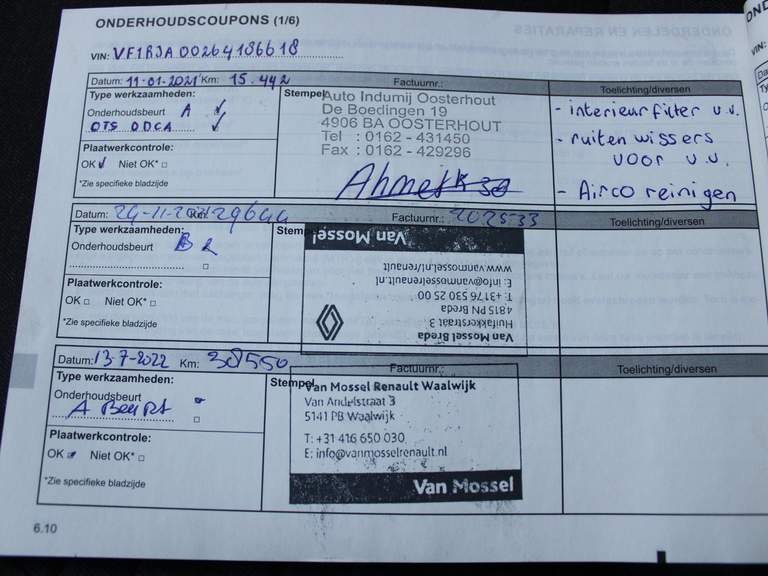 ONDERHOUDSCOUPONS (1/6)
VIN: VF1RJA00264186618
Datum: 11-01-2021 Km: 15.442 Factuurnr.: Toelichting/diversen
Type werkzaamheden:
Onderhoudsbeurt A ✓
OTS ODCA ✓
Plaatwerkcontrole:
OK ✓ Niet OK* □
*Zie specifieke bladzijde
Stempel
Auto Indumij Oosterhout
De Boedingen 19
4906 BA OOSTERHOUT
Tel : 0162 - 431450
Fax : 0162 - 429296
- interieurfilter v.v.
- ruitenwissers
voor v.v.
- Airco reinigen
Datum: 24-11-2021 Km: 29644 Factuurnr.: Toelichting/diversen
Type werkzaamheden:
Onderhoudsbeurt B
Plaatwerkcontrole:
OK □ Niet OK* □
*Zie specifieke bladzijde
Stempel
Van Mossel Breda
Huifakkerstraat 3
4815 PN Breda
T: +3176 530 25 00
E: info@vanmosselrenault.nl
www.vanmossel.nl/renault
Van Mossel
Datum: 13-7-2022 Km: 38550 Factuurnr.: Toelichting/diversen
Type werkzaamheden:
Onderhoudsbeurt
A Beurt
Plaatwerkcontrole:
OK Niet OK* □
*Zie specifieke bladzijde
Stempel
Van Mossel Renault Waalwijk
Van Andelstraat 3
5141 PB Waalwijk
T: +31 416 650 030
E: info@vanmosselrenault.nl
Van Mossel
6.10